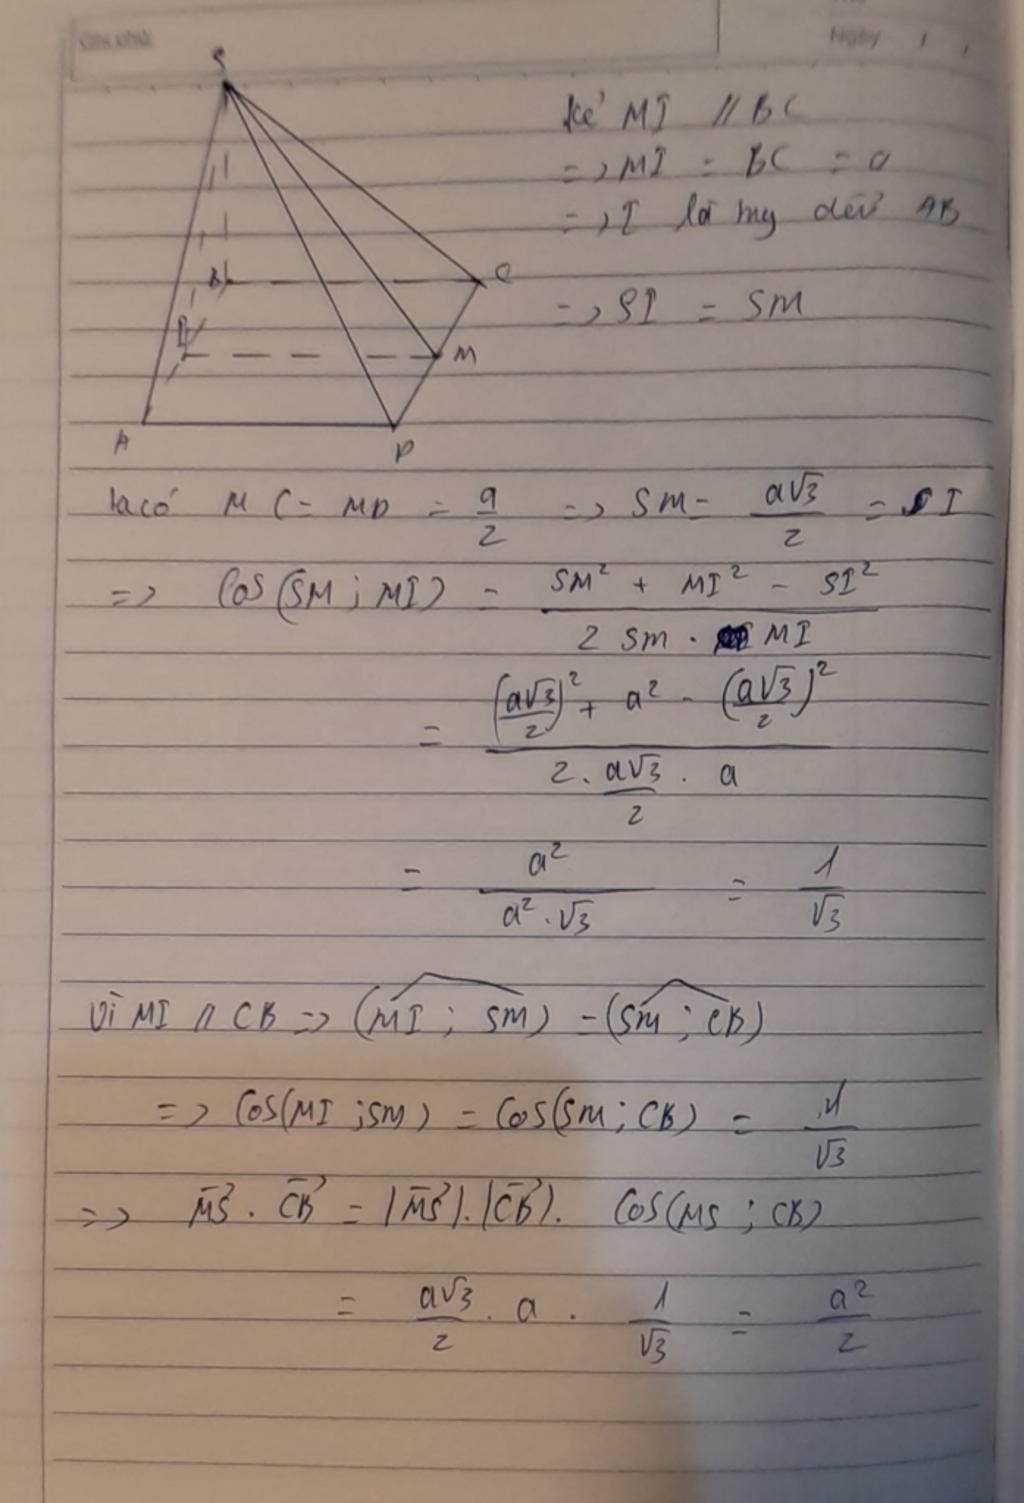 Ghi chú
Ngày / /
S
B
C
I
M
A
D
kẻ MI // BC
=> MI = BC = a
=> I là trung điểm AB
=> SI = SM
ta có MC = MD = a/2 => SM = a√3/2 = SI
=> Cos(SM ; MI) = (SM² + MI² - SI²)/(2 SM . MI)
= ((a√3/2)² + a² - (a√3/2)²)/(2 . a√3/2 . a)
= a²/(a² . √3) = 1/√3
Vì MI // CB => (MI ; SM) = (SM ; CB)
=> Cos(MI ; SM) = Cos(SM ; CB) = 1/√3
=> MS . CB = |MS| . |CB| . Cos(MS ; CB)
= a√3/2 . a . 1/√3 = a²/2